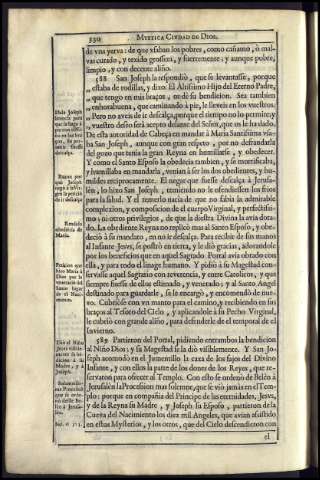 330 MYSTICA CIUDAD DE DIOS.
de vna yerva: de que vsaban los pobres, como cañamo, ò mal-
vas curado, y texido grossera, y fuertemente; y aunque pobre,
limpio, y con decente aliño.
588 San Joseph la respondiò, que se levantasse, porque
estaba de rodillas, y dixo. El Altissimo Hijo del Eterno Padre,
que tengo en mis braços, te dè su bendicion. Sea tambien
enhorabuena, que caminando à pie, le lleveis en los vuestros.
Pero no aveis de ir descalça, porque el tiempo no lo permite; y
vuestro desseo serà acepto delante del Señor, que os le ha dado.
De esta autoridad de Cabeça en mandar à Maria Santissima vsa-
ba San Joseph, aunque con gran respeto, por no defraudarla
del gozo que tenia la gran Reyna en humillarse, y obedecer.
Y como el Santo Esposo la obedecia tambien, y se mortificaba,
y humillaba en mandarla, venian à ser los dos obedientes, y hu-
mildes reciprocamente. El negar que fuesse descalça à Jerusa-
lèn, lo hizo San Joseph, temiendo no le ofendiessen los frios
para la salud. Y el temerlo nacia de que no sabia la admirable
complexion, y composicion de el cuerpo Virginal, y perfectissi-
mo; ni otros privilegios, de que la diestra Divina la avia dota-
do. La obediente Reyna no replicò mas al Santo Esposo, y obe-
deciò à su mandato, en no ir descalça. Para recibir de sus manos
al Infante Jesvs, se postrò en tierra, y le diò gracias, adorandole
por los beneficios que en aquel Sagrado Portal avia obrado con
ella, y para todo el linage humano. Y pidiò à su Magestad con-
servasse aquel Sagrario con reverencia, y entre Catolicos, y que
siempre fuesse de ellos estimado, y venerado; y al Santo Angel
destinado para guardarle, se le encargò, y encomendò de nue-
vo. Cubriòse con vn manto para el camino, y recibiendo en sus
braços al Tesoro del Cielo, y aplicandole à su Pecho Virginal,
le cubriò con grande aliño, para defenderle de el temporal de el
Invierno.
589 Partieron del Portal, pidiendo entrambos la bendicion
al Niño Dios; y su Magestad se la diò visiblemente. Y San Jo-
seph acomodò en el Jumentillo la caxa de los fajos del Divino
Infante, y con ellos la parte de los dones de los Reyes, que re-
servaron para ofrecer al Templo. Con esto se ordenò de Belèn à
Jerusalèn la Procession mas solemne, que se viò jamàs en el Tem-
plo; porque en compañia del Principe de las eternidades, Jesvs,
y de la Reyna su Madre, y Joseph su Esposo, partieron de la
Cueva del Nacimiento los diez mil Angeles, que avian assistido
en estos Mysterios, y los otros, que del Cielo descendieron con
el